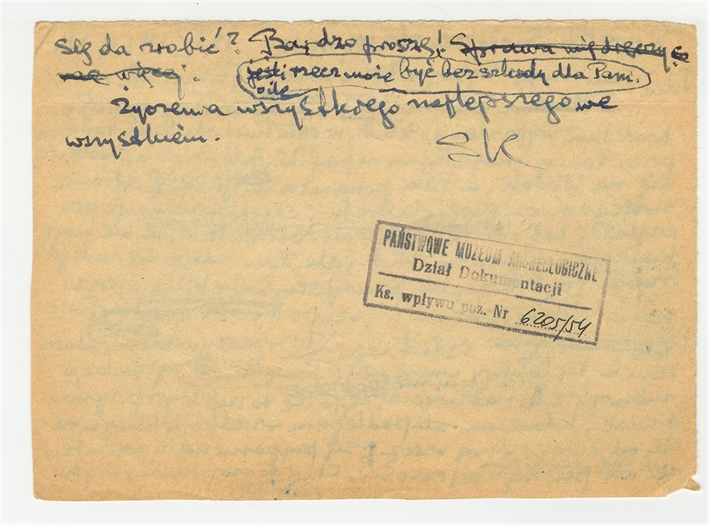 się da zrobić? Bardzo proszę! Sprawa mię dręczy
jeśli rzecz może być bez szkody dla Pani.
oile
Życzenia wszystkiego najlepszego we
wszystkiem.
SK
PAŃSTWOWE MUZEUM ARCHEOLOGICZNE
Dział Dokumentacji
Ks. wpływu poz. Nr 6205/54